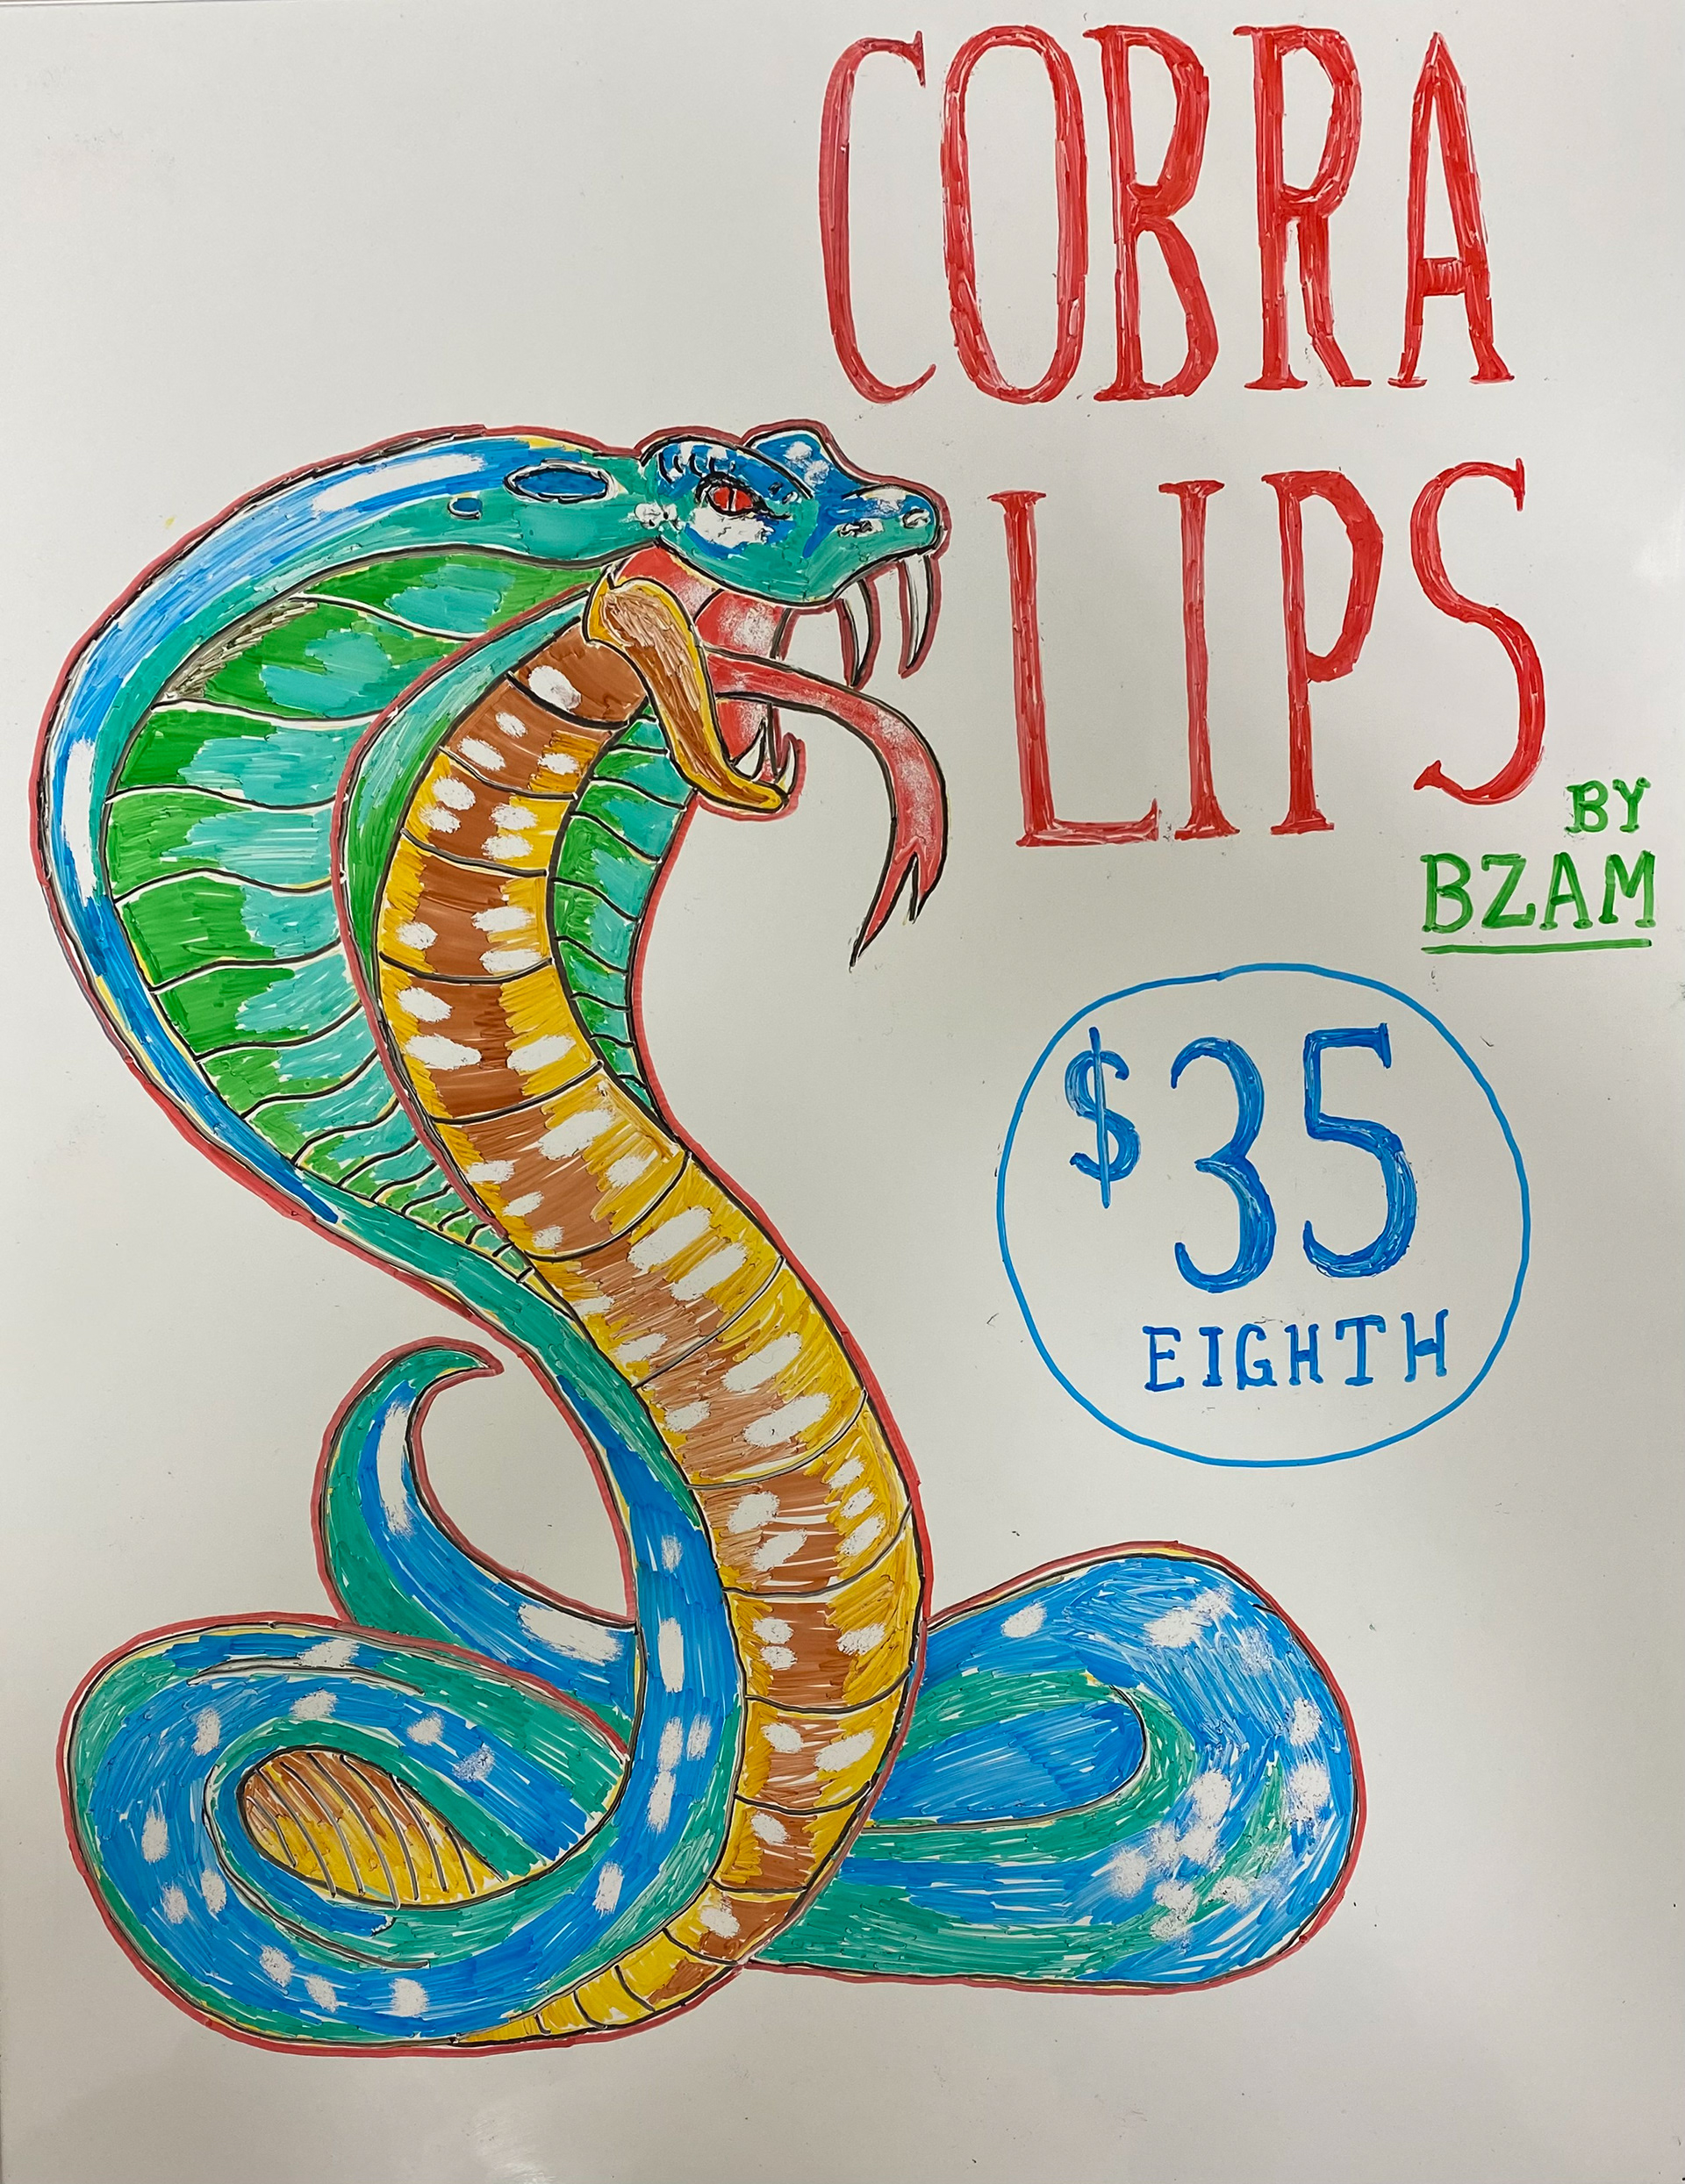 COBRA
LIPS
BY
BZAM
$35
EIGHTH